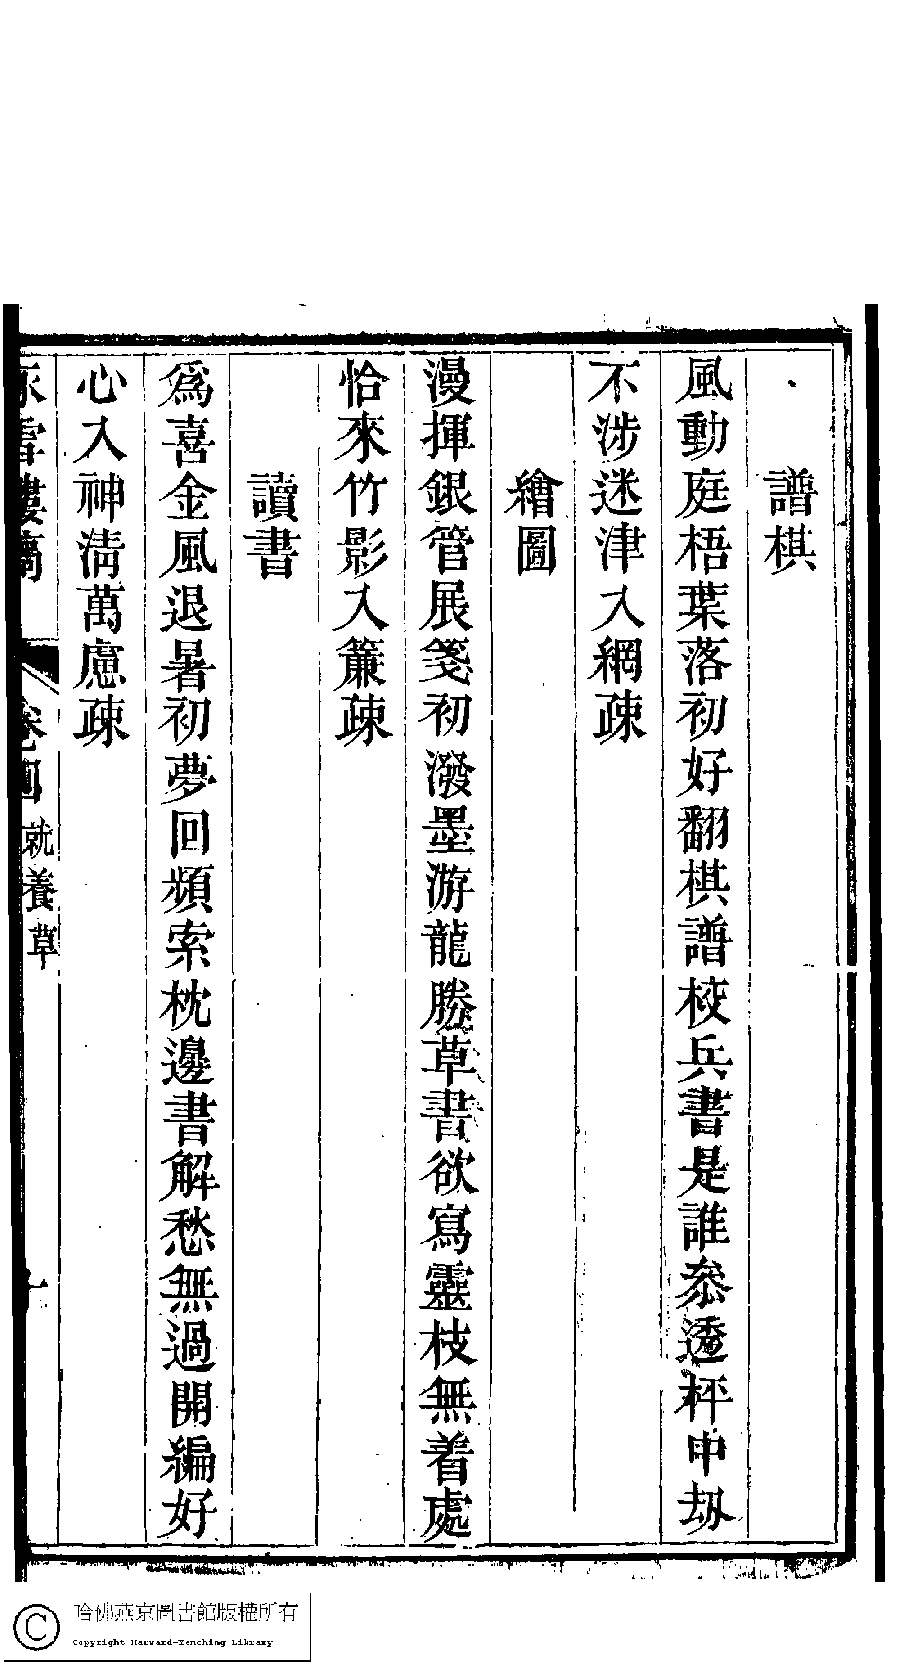 譜棋
風動庭梧葉落初好翻棋譜校兵書是誰叅透枰中刼
不涉迷津入綱疎
繪圖
漫揮銀管展箋初潑墨游龍勝草書欲寫靈枝無着處
恰來竹影入簾疎
讀書
爲喜金風退暑初夢回頻索枕邊書解愁無過開編好
心入神淸萬慮疎
雪樓
卷四 就養草
十
哈佛燕京圖書館版權所有
Copyright Harvard-Yenching Library